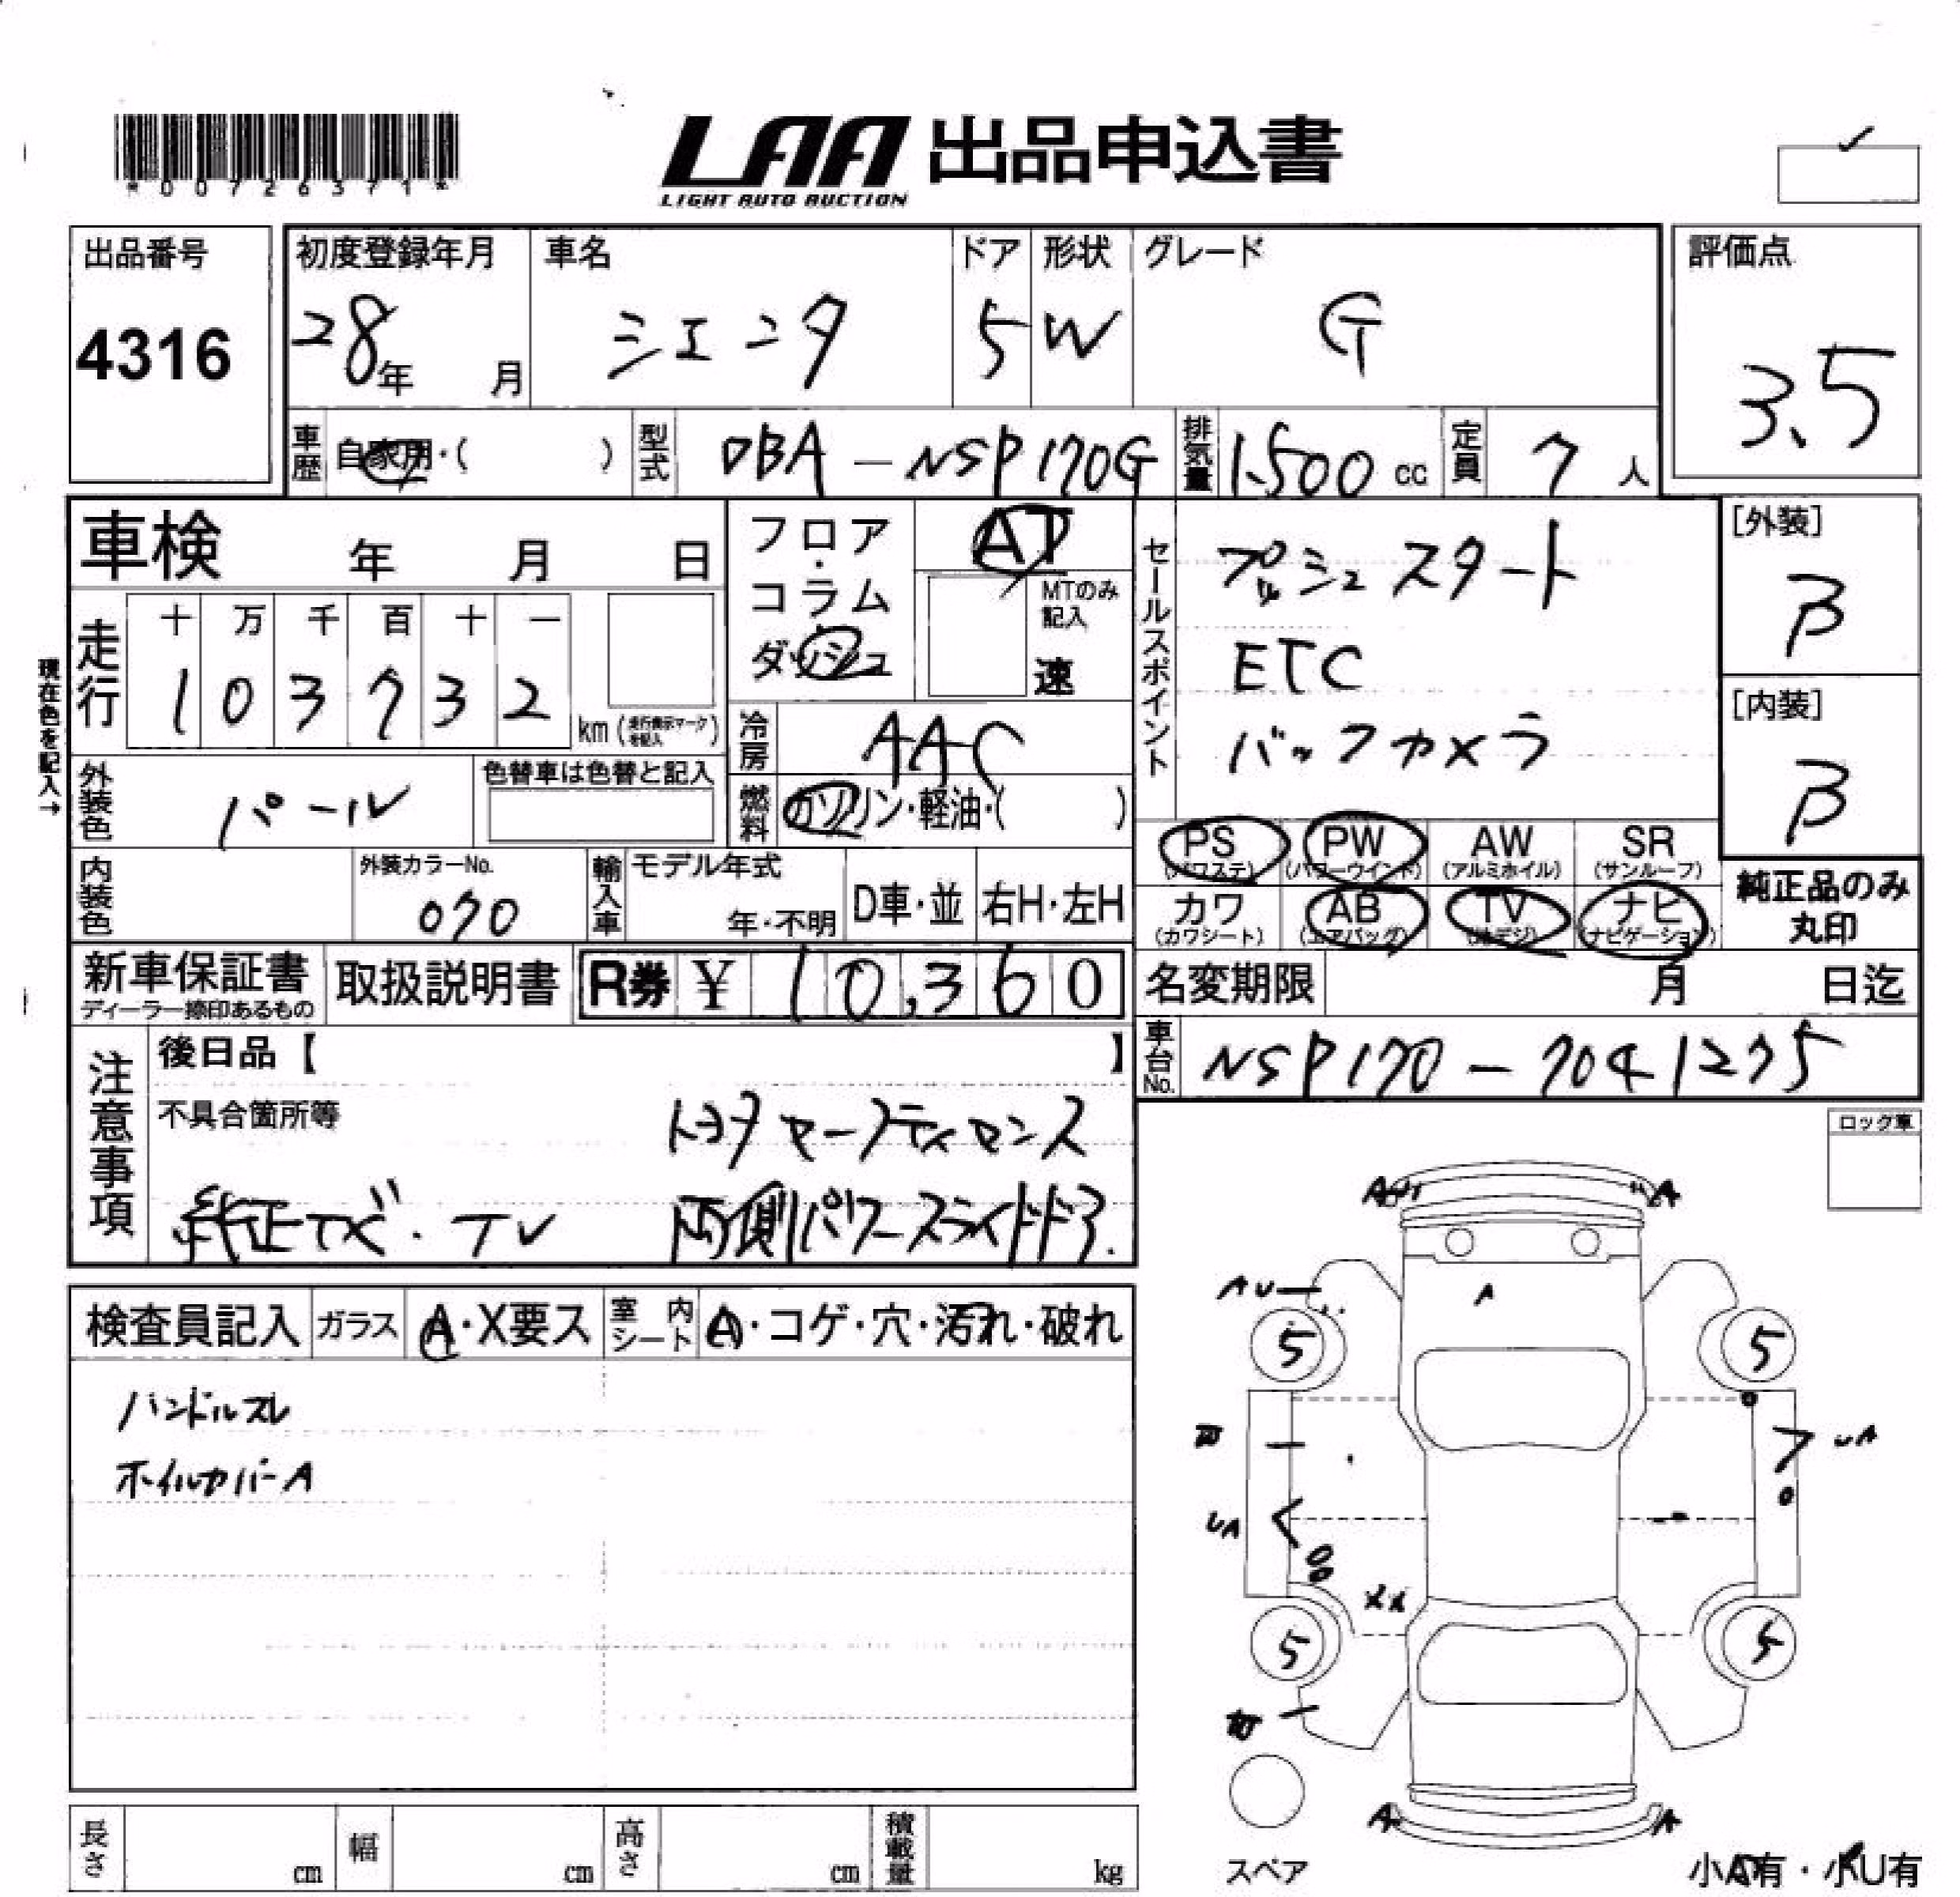 *00726371*
LAA 出品申込書
LIGHT AUTO AUCTION
出品番号
4316
初度登録年月
28年 月
車名
シエンタ
ドア
5
形状
W
グレード
G
評価点
3.5
車歴 自家用・( )
型式 DBA-NSP170G
排気量 1.500 cc
定員 7 人
車検 年 月 日
フロア・コラム・ダッシュ
AT
MTのみ記入
速
セールスポイント
プッシュスタート
ETC
バックカメラ
[外装]
B
[内装]
B
現在色を記入→
走行
十 万 千 百 十 一
1 0 3 7 3 2
km (走行表示マークを記入)
冷房 AAC
燃料 ガソリン・軽油・( )
外装色 パール
色替車は色替と記入
内装色
外装カラーNo.
070
輸入車
モデル年式
年・不明
D車・並
右H・左H
PS (パワステ)
PW (パワーウインド)
AW (アルミホイル)
SR (サンルーフ)
カワ (カワシート)
AB (エアバッグ)
TV (地デジ)
ナビ (ナビゲーション)
純正品のみ丸印
新車保証書
ディーラー捺印あるもの
取扱説明書
R券 ¥ 10,360
名変期限 月 日迄
車台No. NSP170-7041275
注意事項
後日品【 】
不具合箇所等
トヨタセーフティセンス
純正ナビ・TV 両側パワースライドドア.
ロック車
検査員記入
ガラス A・X要ス
室内シート A・コゲ・穴・汚れ・破れ
ハンドルスレ
ホイルカバーA
A A
AU
A
5 5
UA
UA
XX
5 5
A A
スペア
小A有・小U有
長さ cm
幅 cm
高さ cm
積載量 kg